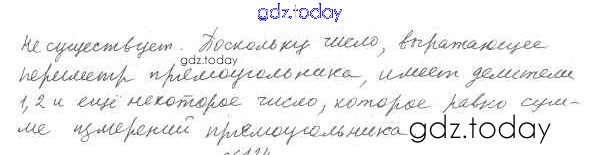 gdz.today
Не существует. Поскольку число, выражающее
gdz.today
периметр прямоугольника, имеет делители
1, 2 и ещё некоторое число, которое равно сум-
ме измерений прямоугольника
gdz.today